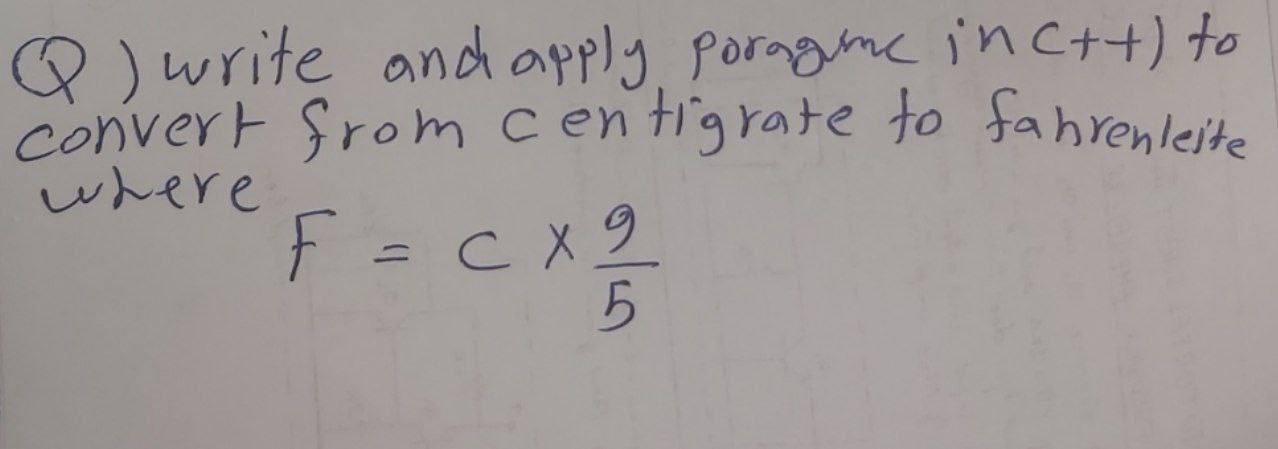 Q) write and apply poragme in c++) to
convert from centigrate to fahrenleite
where
F = C × 9/5